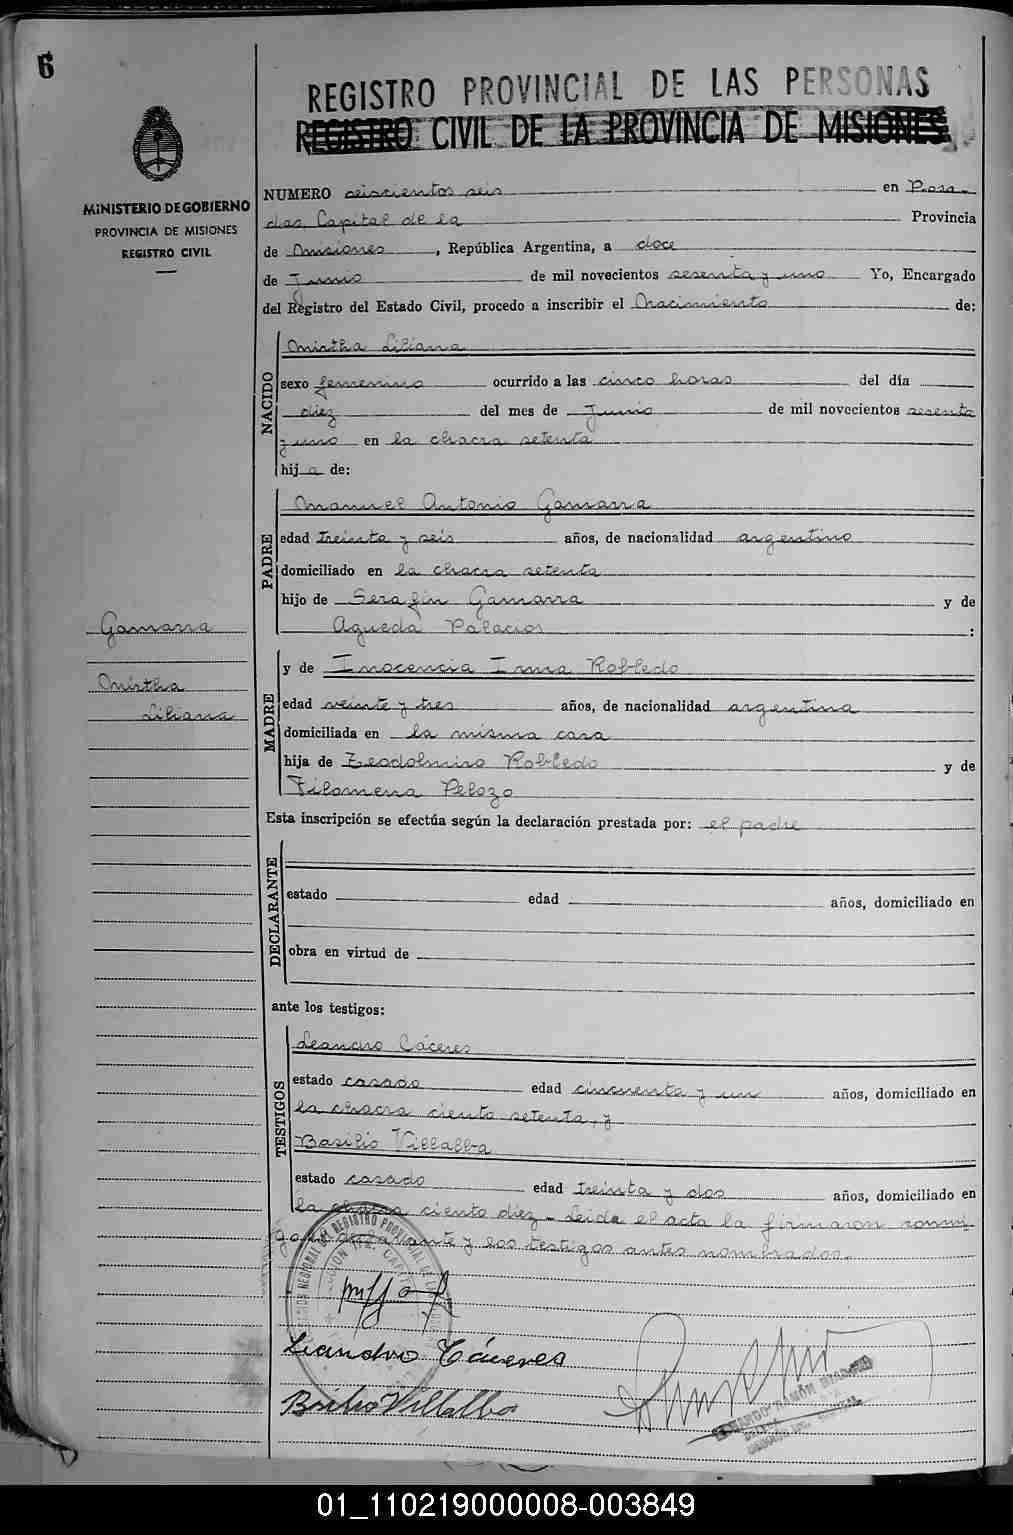 6
REGISTRO PROVINCIAL DE LAS PERSONAS
REGISTRO CIVIL DE LA PROVINCIA DE MISIONES
MINISTERIO DE GOBIERNO
PROVINCIA DE MISIONES
REGISTRO CIVIL
NUMERO seiscientos seis en Posa-
das, Capital de la Provincia
de Misiones, República Argentina, a doce
de Junio de mil novecientos sesenta y uno Yo, Encargado
del Registro del Estado Civil, procedo a inscribir el Nacimiento de:
NACIDO
Mirtha Liliana
sexo femenino ocurrido a las cinco horas del día
diez del mes de Junio de mil novecientos sesenta
y uno en la chacra setenta
hija de:
PADRE
Manuel Antonio Gamarra
edad treinta y seis años, de nacionalidad argentino
domiciliado en la chacra setenta
hijo de Serafín Gamarra y de
Agueda Palacios :
Gamarra
Mirtha
Liliana
MADRE
y de Inocencia Irma Robledo
edad veinte y tres años, de nacionalidad argentina
domiciliada en la misma casa
hija de Teodolmiro Robledo y de
Filomena Pelozo
Esta inscripción se efectúa según la declaración prestada por: el padre
DECLARANTE
estado edad años, domiciliado en
obra en virtud de
ante los testigos:
TESTIGOS
Leandro Cáceres
estado casado edad cincuenta y un años, domiciliado en
la chacra ciento setenta, y
Basilio Villalba
estado casado edad treinta y dos años, domiciliado en
la chacra ciento diez - Leida el acta la firmaron conmi-
go el declarante y los testigos antes nombrados.
Leandro Cáceres
Basilio Villalba
01_110219000008-003849